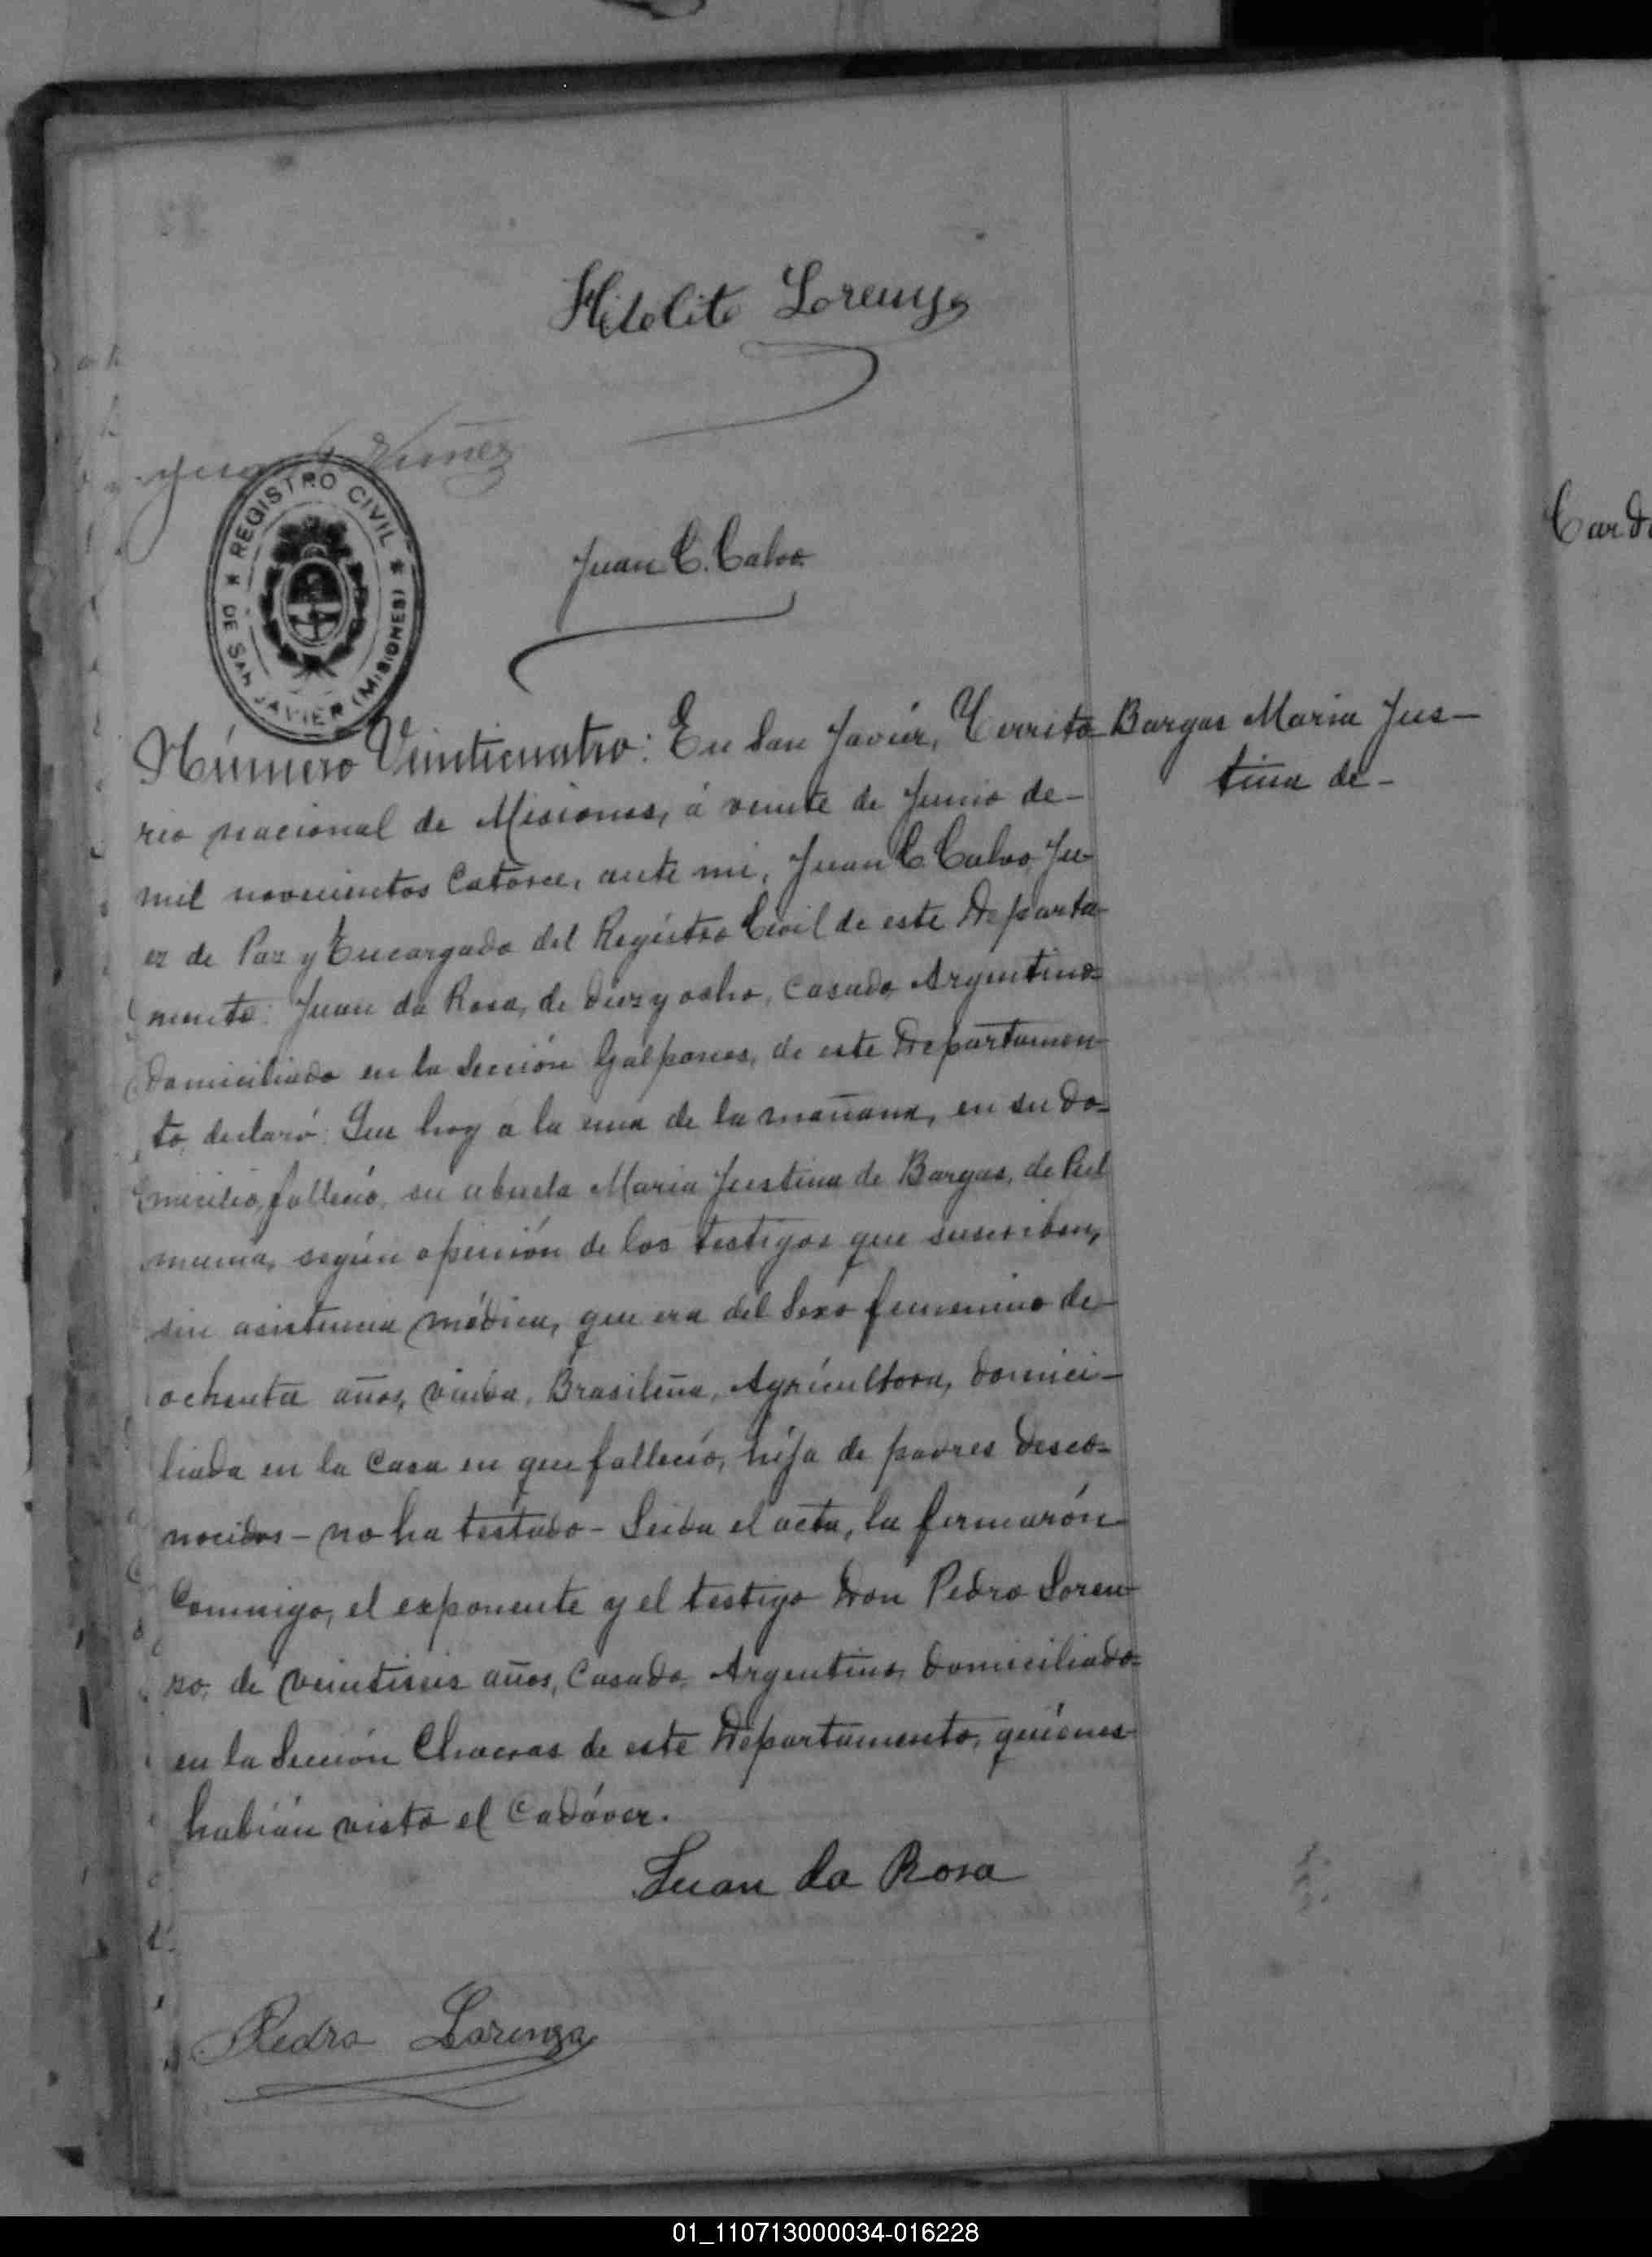 Hitolito Lorenzo
Juan Nuñez
REGISTRO CIVIL
DE SAN JAVIER (MISIONES)
Juan C. Calvo
Número Veinticuatro: En San Javier, Territo-
Bargas Maria Jus-
tina de-
rio nacional de Misiones, á veinte de Junio de-
mil novecientos Catorce, ante mi, Juan C. Calvo, Ju-
ez de Paz y Encargado del Registro Civil de este Departa-
mento: Juan da Rosa, de diez y ocho, casado, Argentino-
domiciliado en la Sección Galpones, de este Departamen-
to, declaró: Que hoy a la una de la mañana, en su do-
micilio, falleció, su abuela Maria Justina de Bargas, de Pul
munia, según opinión de los testigos que suscriben,
sin asistencia médica, que era del Sexo femenino de-
ochenta años, viuda, Brasileña, Agrícultora, domici-
liada en la Casa en que falleció, hija de padres desco-
nocidos - no ha testado - Leida el acta, la firmarón-
Conmigo, el exponente y el testigo Don Pedro Loren-
zo, de veintiseis años, Casado, Argentino, domiciliado-
en la Sección Chacras de este Departamento, quiénes-
habián visto el Cadáver.
Juan da Rosa
Pedro Lorenzo
Card
01_110713000034-016228